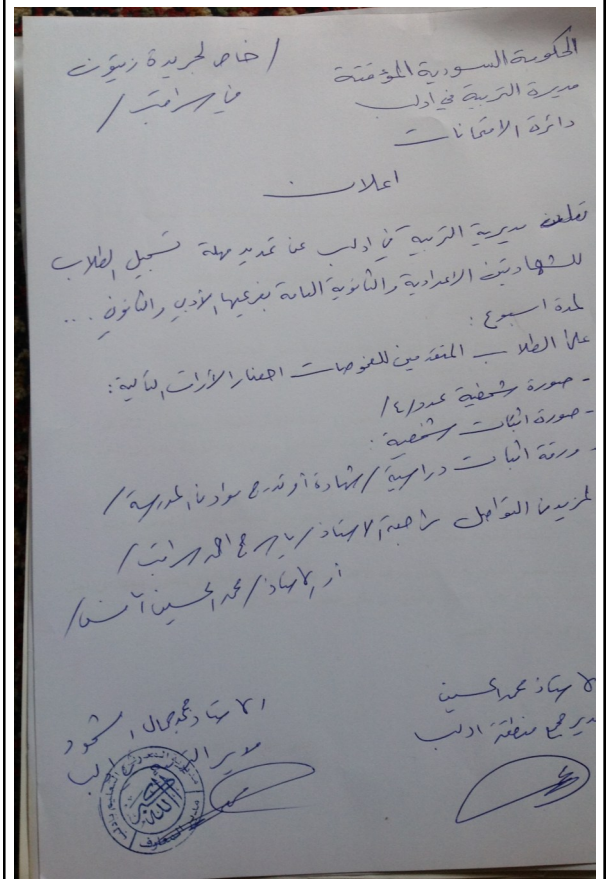 الحكومة السورية المؤقتة
مديرية التربية في ادلب
دائرة الامتحانات
/ خاص لجريدة زيتون
في سراقب /
اعلان
تعلن مديرية التربية في ادلب عن تمديد مهلة تسجيل الطلاب
للشهادتين الاعدادية والثانوية العامة بفرعيها الأدبي والثانوي ...
لمدة اسبوع :
على الطلاب المتقدمين للفحوصات احضار الأوراق التالية :
- صورة شخصية عدد /٤/
- صورة اثبات شخصية .
- ورقة اثبات دراسية / شهادة أو تدرج من المدرسة /
لمزيد من التواصل مراجعة الاستاذ / سراقب /
أو الاستاذ / محمد الحسين /
الاستاذ محمد الحسين
مدير مجمع منطقة ادلب
الاستاذ محمد جمال الشحود
مدير التربية ادلب